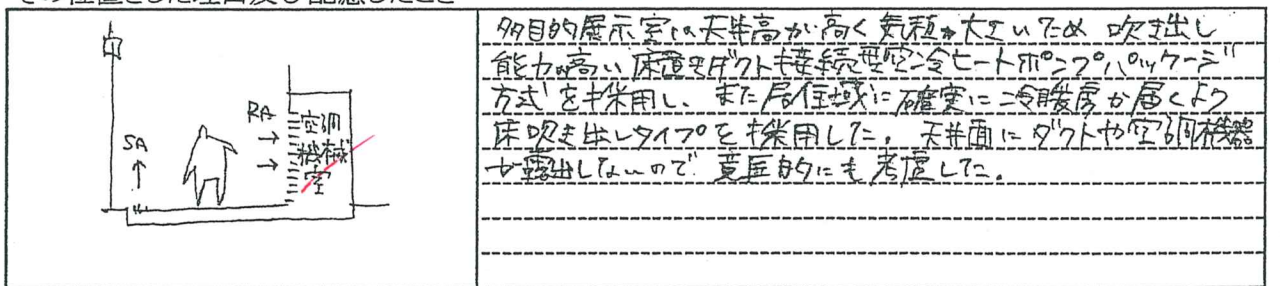 その位置とした理由及び配慮したこと
SA
RA
空調
機械
室
多目的展示室は天井高が高く気積が大きいため 吹き出し
能力の高い床置きダクト接続型空冷ヒートポンプパッケージ
方式を採用し、また居住域に確実に冷暖房が届くよう
床吹き出しタイプを採用した。天井面にダクトや空調機器
が露出しないので意匠的にも考慮した。